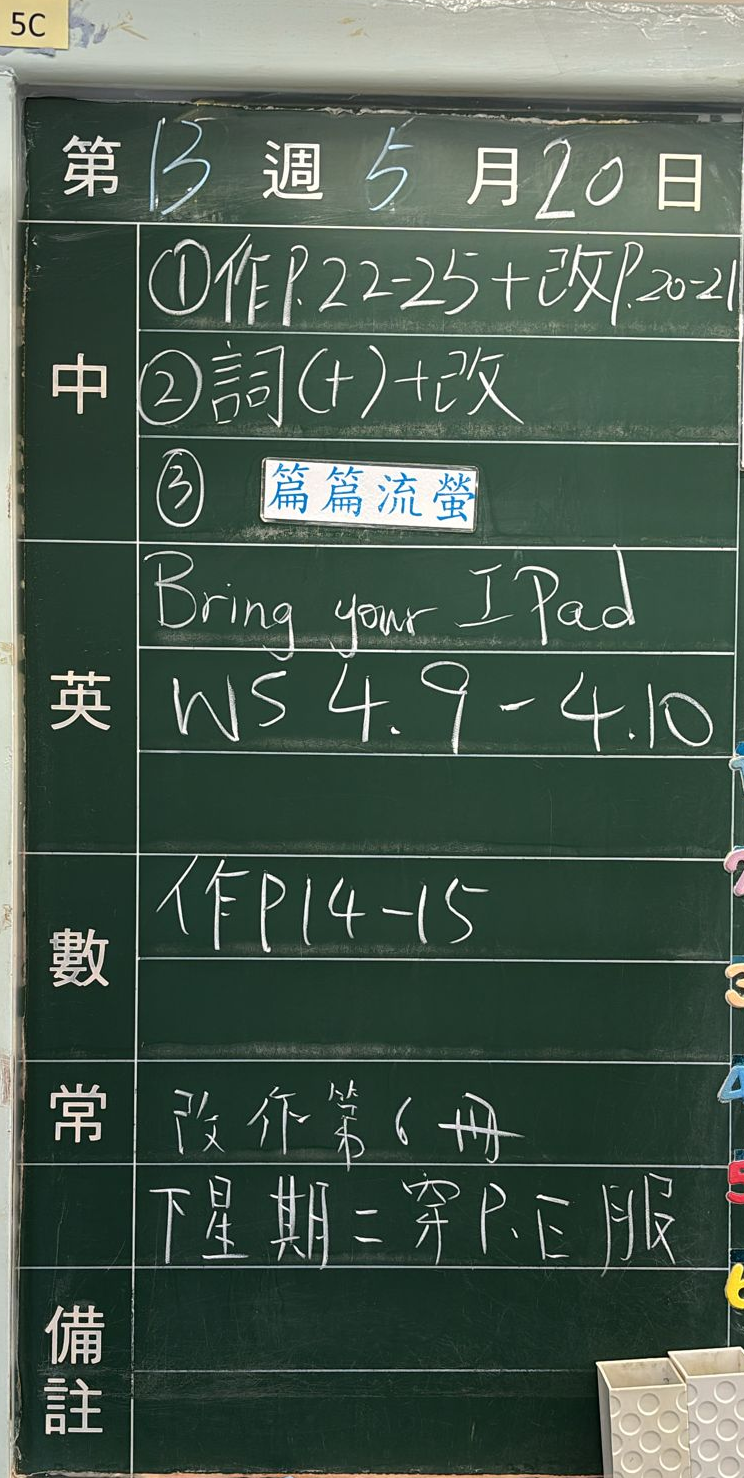 5C
第 13 週 5 月 20 日
中
①作P.22-25+改P.20-21
②詞(十)+改
③ 篇篇流螢
英
Bring your IPad
WS 4.9-4.10
數
作P14-15
常
改作第6冊
下星期二穿P.E服
備註
1
2
3
4
5
6